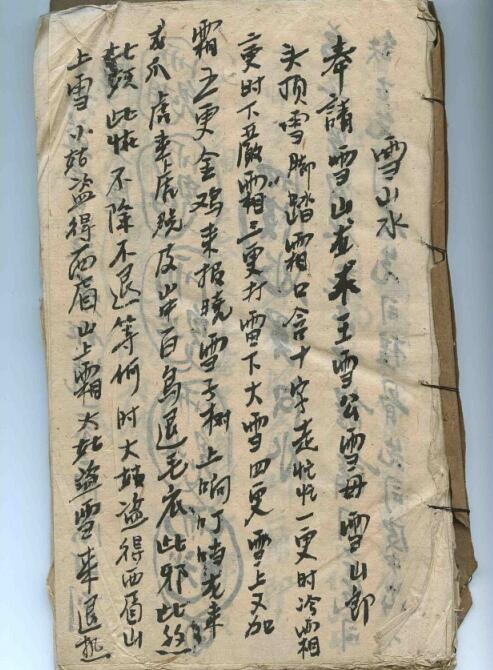 雪山水
奉請雪山龙来王雪公雪母雪山郎
头顶雪脚踏霜口含十字走忙忙一更时冷霜
二更时下严霜三更打雪下大雪四更雪上又加
霜五更金鸡来报晓雪子树上响叮当龙来
龙爪虎来虎脱皮山中百鸟退毛衣此邪此
此不除不退等何时大姑盗得西眉山
上雪小姑盗得西眉山上霜大姑盗雪来退热